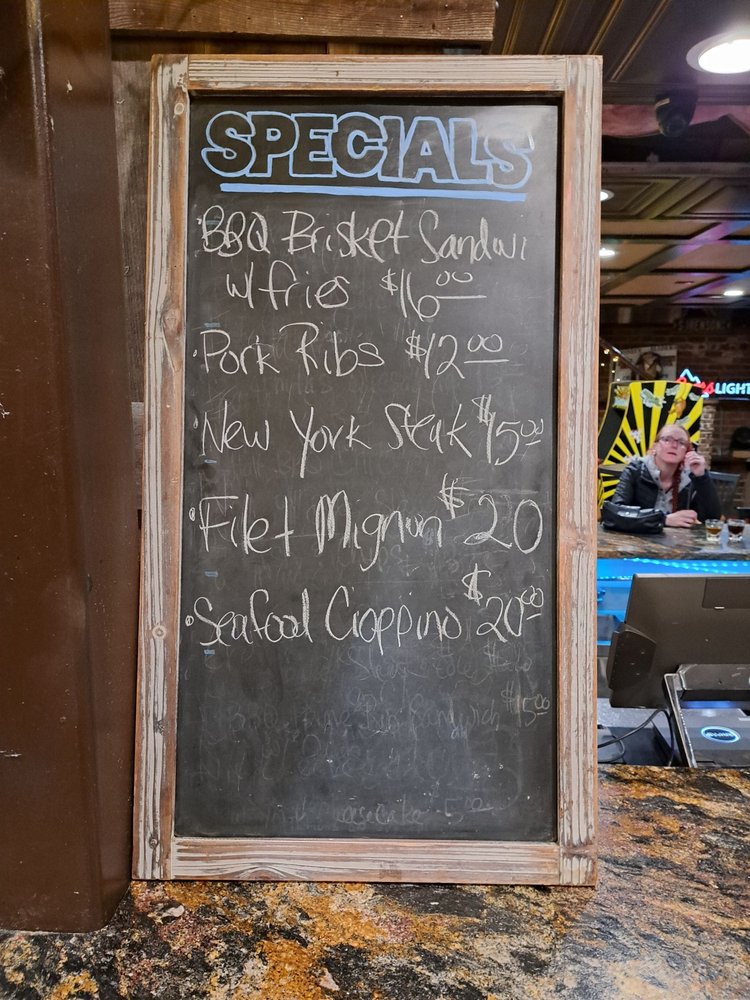 SPECIALS
• BBQ Brisket Sandwi
w/fries $16.00
• Pork Ribs $12.00
• New York Steak $15.00
• Filet Mignon $20
• Seafood Cioppino $20.00
Sandwich $15.00
cheesecake 5.00
LIGHT